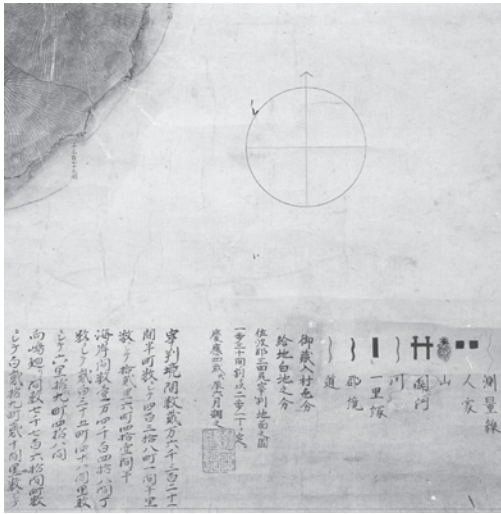 測量線
人家
山
関門
川
一里塚
郡境
道
御蔵入村色分
給地白地之分
佐波郡三田尻宰判地面之図
慶應四戊辰六月調之
宰判境間数弐万六千三百二十二
間半町数ニシテ四百三拾八町一間半里
数ニシテ拾弐里六町四拾壱間半
海岸間数壱万四千百四拾八間丁
数ニシテ弐百三十五町四十八間里数
ニシテ六里拾九町四拾八間
向嶋廻り間数七千七百六拾間町数
ニシテ百弐拾九町弐十間里数ニシテ